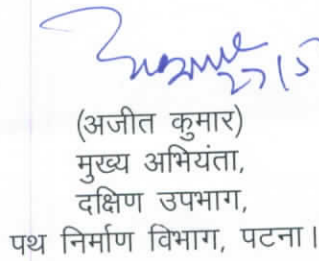 27/5
(अजीत कुमार)
मुख्य अभियंता,
दक्षिण उपभाग,
पथ निर्माण विभाग, पटना।